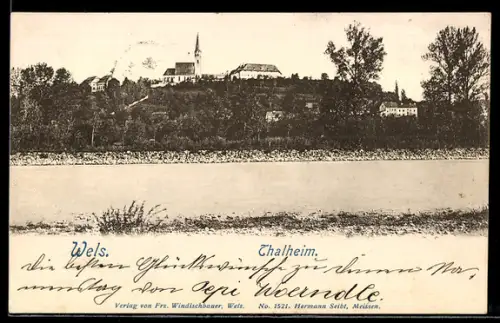 Wels. Thalheim.
die besten Glückwünsche zu Ihrem Na-
menstag von
Verlag von Frs. Windischbauer, Wels. No. 1521. Hermann Seibt, Meissen.